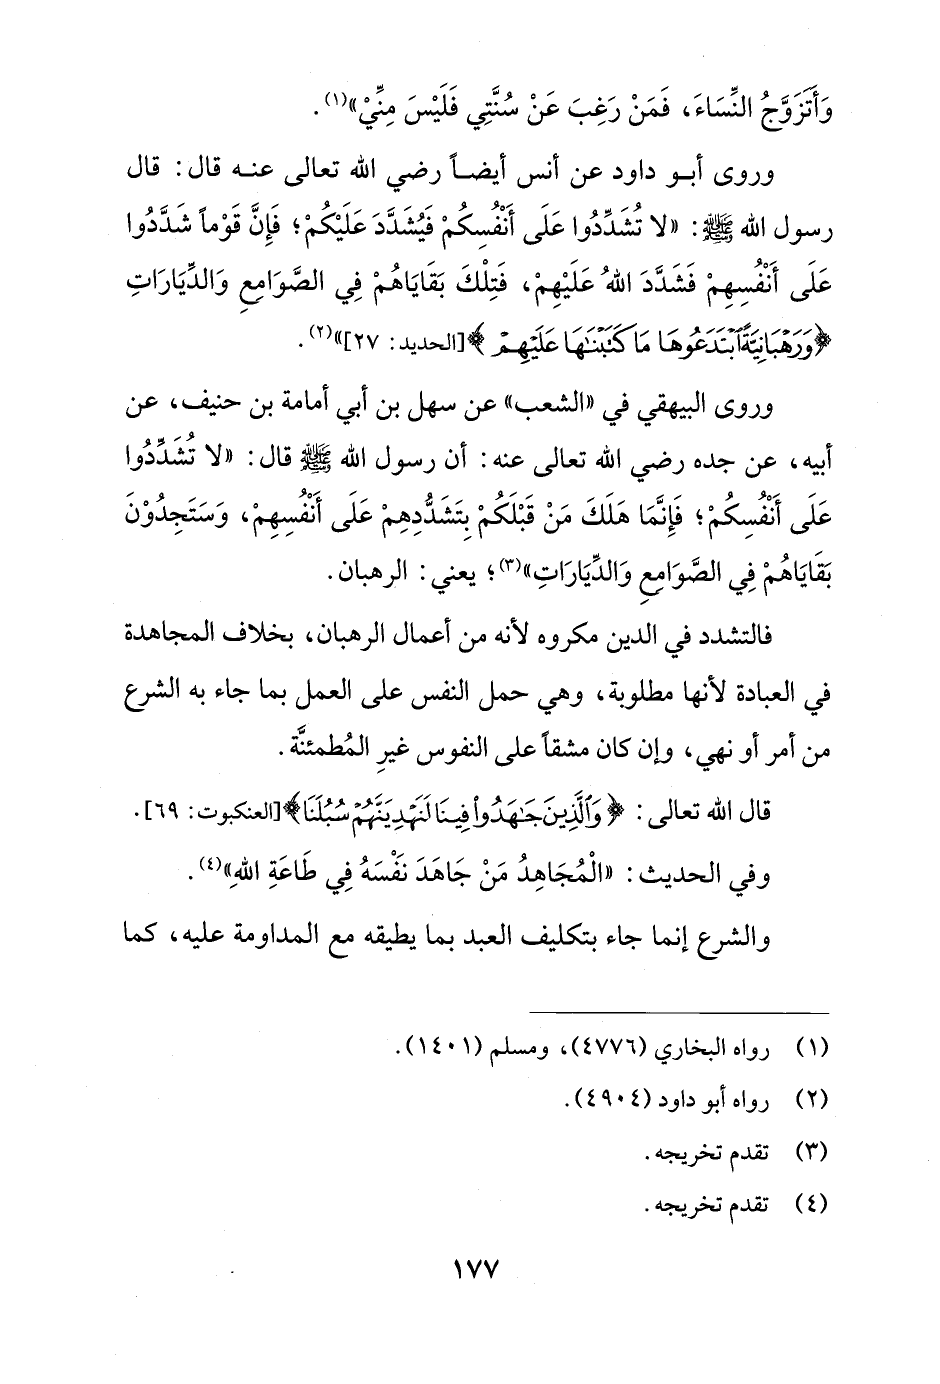 وَأَتَزَوَّجُ النِّسَاءَ، فَمَنْ رَغِبَ عَنْ سُنَّتِي فَلَيْسَ مِنِّيْ»(١).
وروى أبو داود عن أنس أيضاً رضي الله تعالى عنه قال: قال
رسول الله ﷺ: «لا تُشَدِّدُوا عَلَى أَنْفُسِكُمْ فَيُشَدَّدَ عَلَيْكُمْ؛ فَإِنَّ قَوْماً شَدَّدُوا
عَلَى أَنْفُسِهِمْ فَشَدَّدَ اللهُ عَلَيْهِمْ، فَتِلْكَ بَقَايَاهُمْ فِي الصَّوَامِعِ وَالدِّيَارَاتِ
﴿وَرَهْبَانِيَّةً ٱبْتَدَعُوهَا مَا كَتَبْنَٰهَا عَلَيْهِمْ﴾[الحديد: ٢٧]»(٢).
وروى البيهقي في «الشعب» عن سهل بن أبي أمامة بن حنيف، عن
أبيه، عن جده رضي الله تعالى عنه: أن رسول الله ﷺ قال: «لا تُشَدِّدُوا
عَلَى أَنْفُسِكُمْ؛ فَإِنَّمَا هَلَكَ مَنْ قَبْلَكُمْ بِتَشَدُّدِهِمْ عَلَى أَنْفُسِهِمْ، وَسَتَجِدُوْنَ
بَقَايَاهُمْ فِي الصَّوَامِعِ وَالدِّيَارَاتِ»(٣)؛ يعني: الرهبان.
فالتشدد في الدين مكروه لأنه من أعمال الرهبان، بخلاف المجاهدة
في العبادة لأنها مطلوبة، وهي حمل النفس على العمل بما جاء به الشرع
من أمر أو نهي، وإن كان مشقاً على النفوس غيرِ المُطمئنَّة.
قال الله تعالى: ﴿وَٱلَّذِينَ جَٰهَدُوا۟ فِينَا لَنَهْدِيَنَّهُمْ سُبُلَنَا﴾[العنكبوت: ٦٩].
وفي الحديث: «الْمُجَاهِدُ مَنْ جَاهَدَ نَفْسَهُ فِي طَاعَةِ اللهِ»(٤).
والشرع إنما جاء بتكليف العبد بما يطيقه مع المداومة عليه، كما
(١) رواه البخاري (٤٧٧٦)، ومسلم (١٤٠١).
(٢) رواه أبو داود (٤٩٠٤).
(٣) تقدم تخريجه.
(٤) تقدم تخريجه.
١٧٧